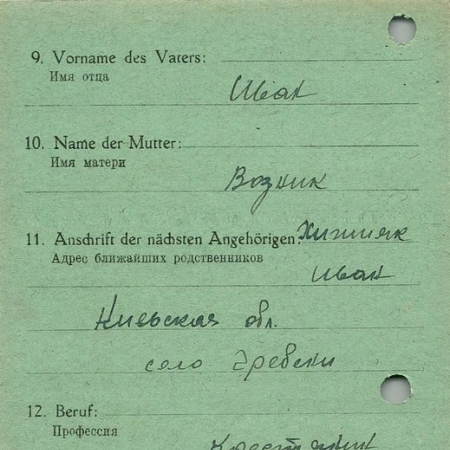 9. Vorname des Vaters:
Имя отца
Иван
10. Name der Mutter:
Имя матери
Возник
11. Anschrift der nächsten Angehörigen: Хижняк
Адрес ближайших родственников
Иван
Киевская обл.
село Гребени
12. Beruf:
Профессия
Крестьянин